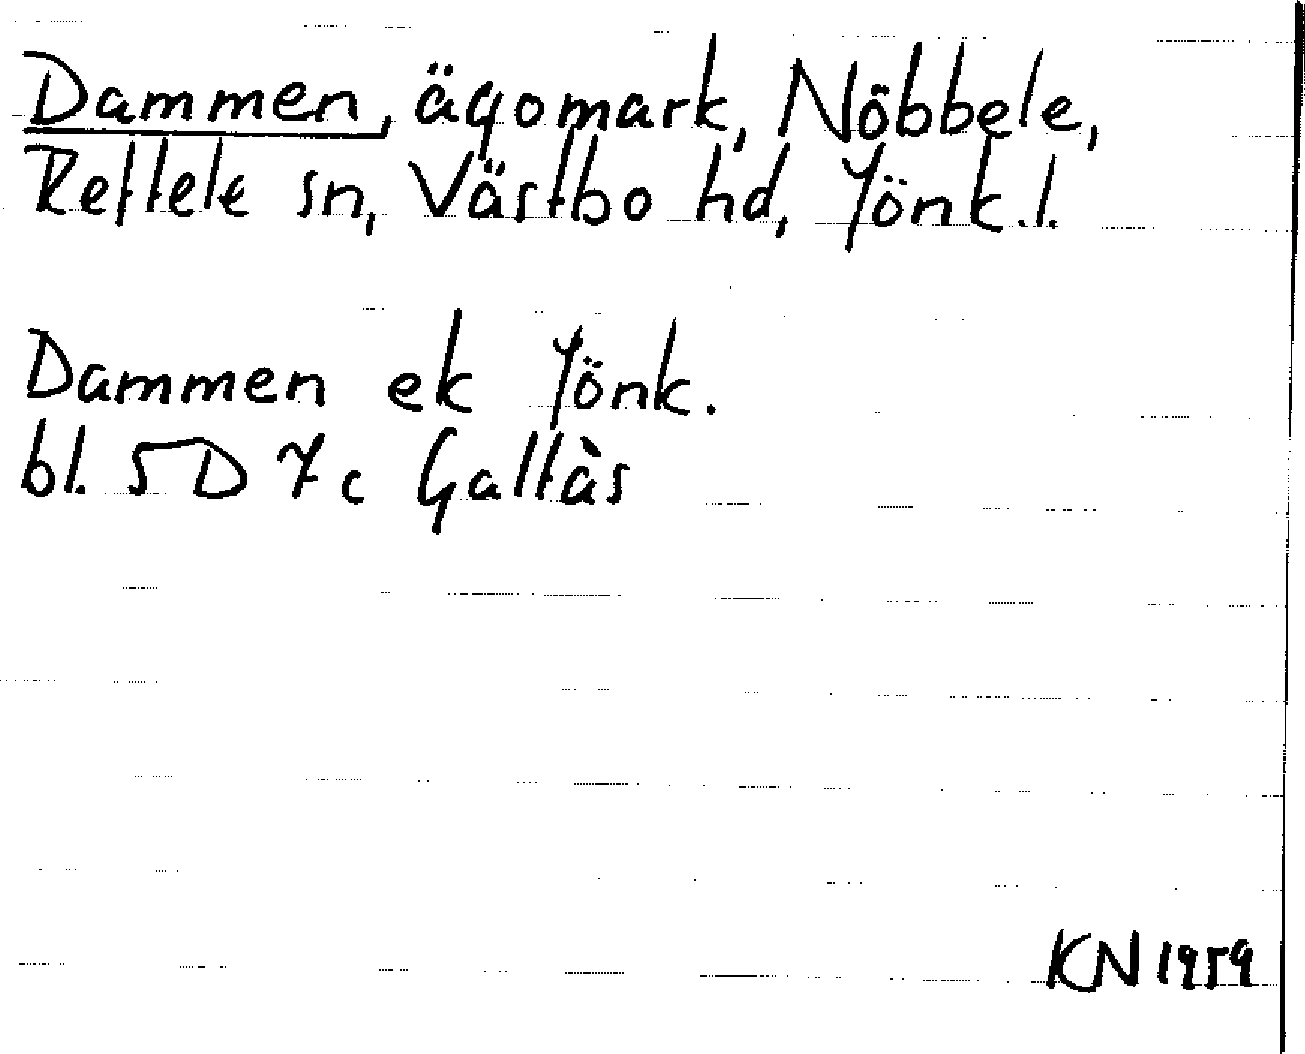 Dammen, ägomark, Nöbbele,
Reftele sn, Västbo hd, Jönk.l.
Dammen ek Jönk.
bl. 5D 7c Gallås
KN 1959